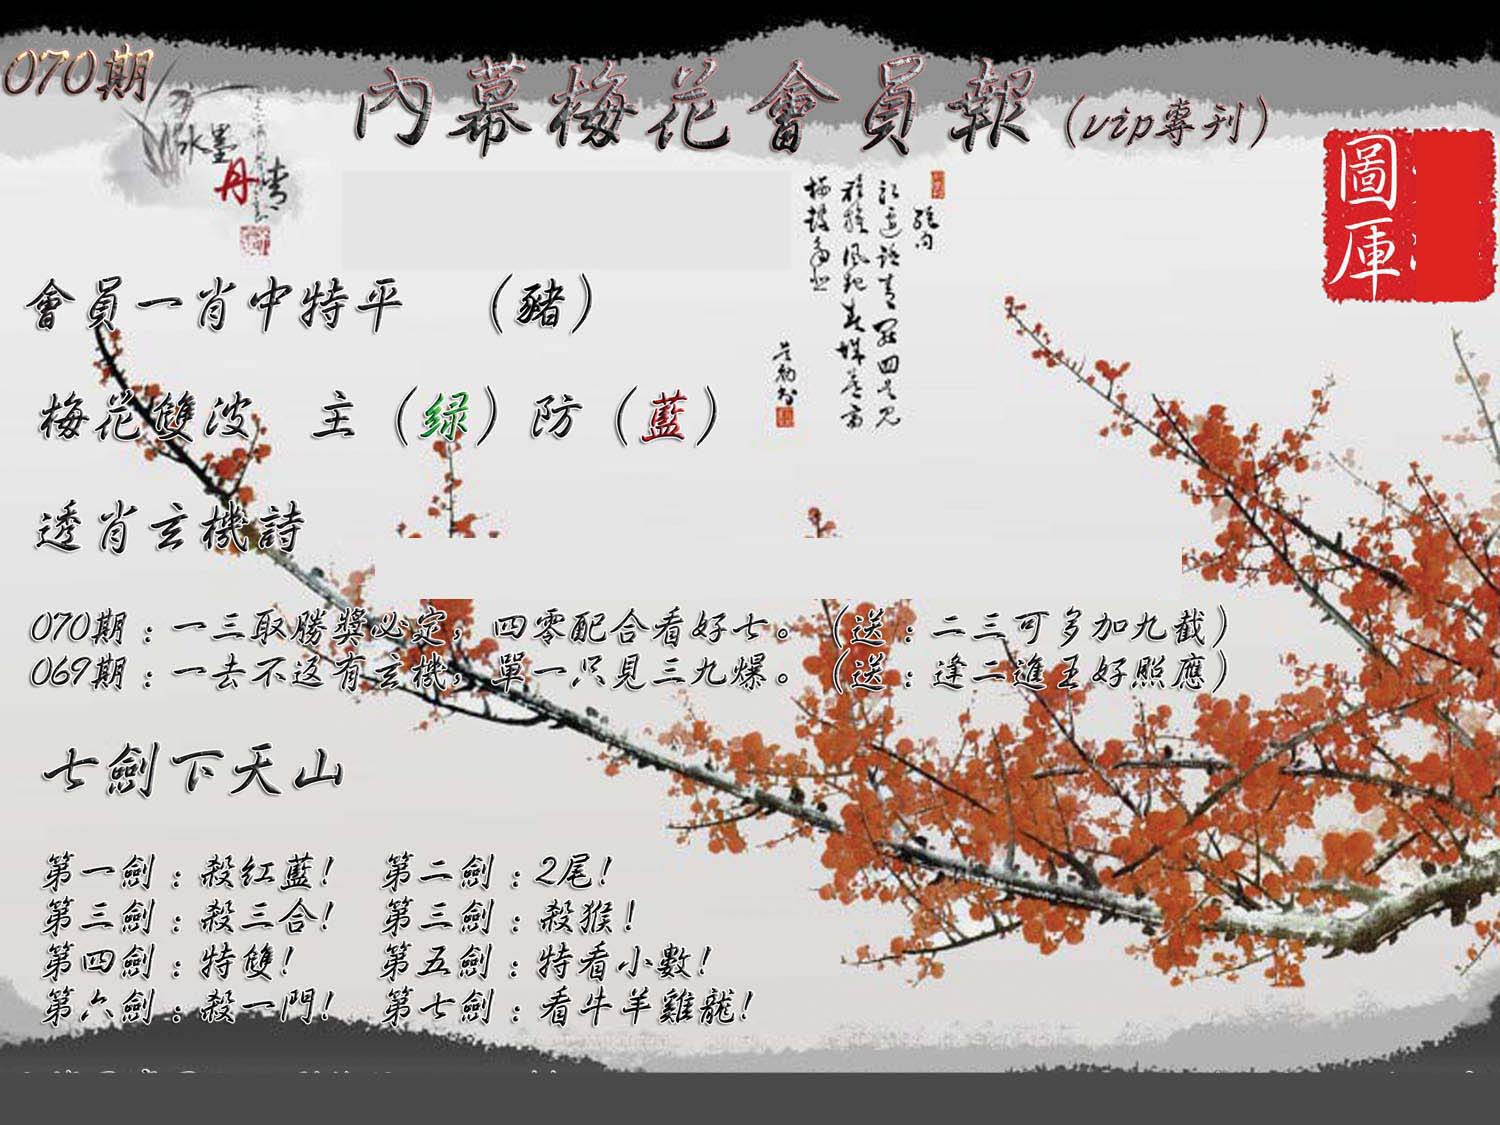 070期
內幕梅花會員報（vip專刊）
水墨
丹青
圖庫
會員一肖中特平 （豬）
梅花雙波 主（绿）防（藍）
透肖玄機詩
070期：一三取勝獎必定，四零配合看好七。（送：二三可多加九截）
069期：一去不返有玄機，單一只見三九爆。（送：逢二進王好照應）
七劍下天山
第一劍：殺红藍！ 第二劍：2尾！
第三劍：殺三合！ 第三劍：殺猴！
第四劍：特雙！ 第五劍：特看小數！
第六劍：殺一門！ 第七劍：看牛羊雞龍！